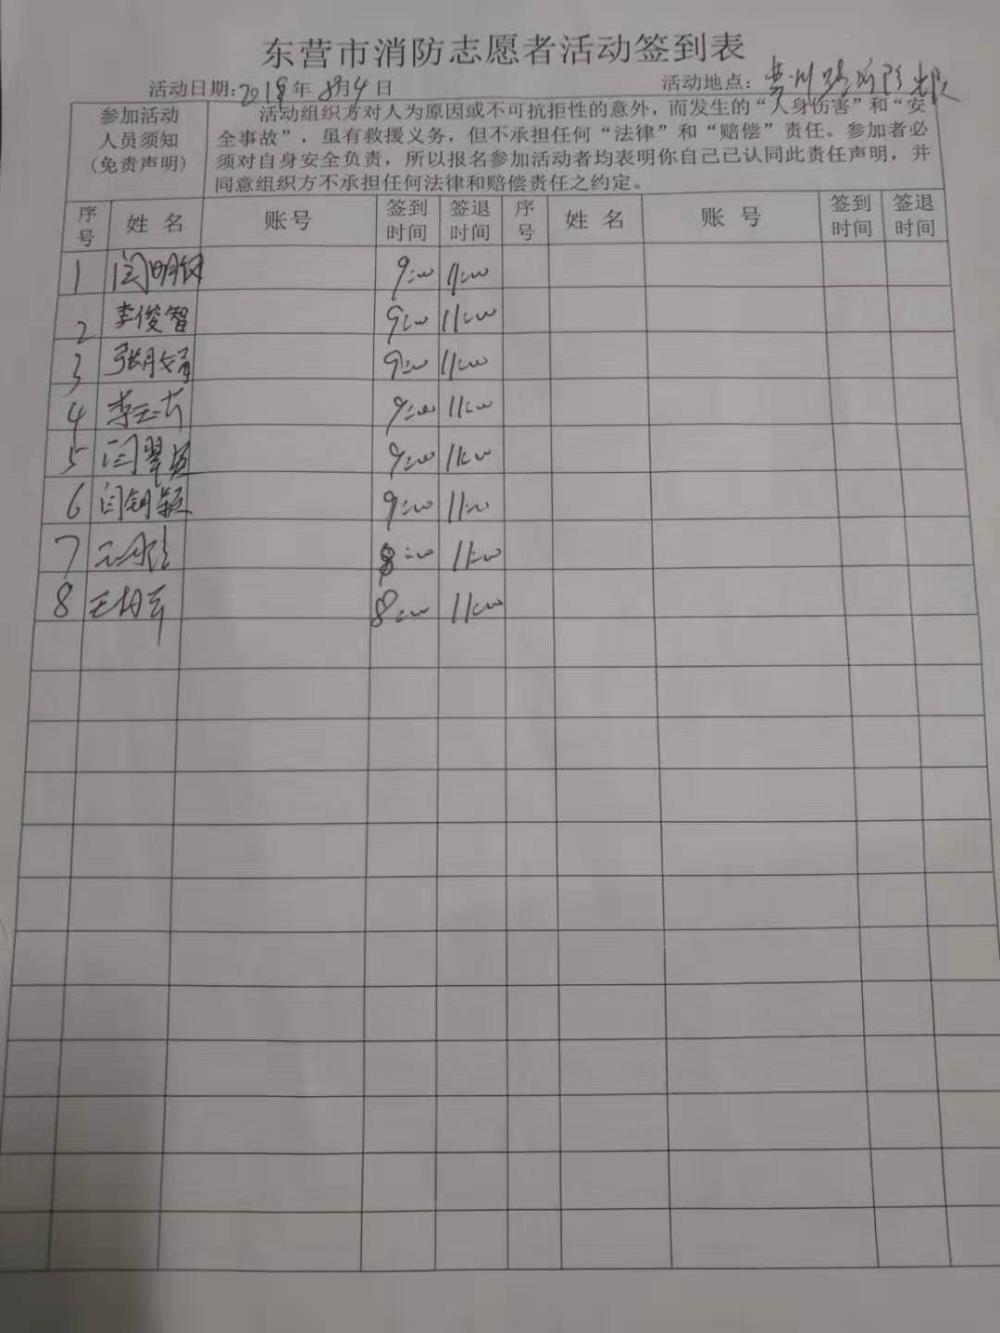 东营市消防志愿者活动签到表
活动日期:2018年8月4日 活动地点:
参加活动人员须知(免责声明)
活动组织方对人为原因或不可抗拒性的意外，而发生的“人身伤害”和“安
全事故”，虽有救援义务，但不承担任何“法律”和“赔偿”责任。参加者必
须对自身安全负责，所以报名参加活动者均表明你自己已认同此责任声明，并
同意组织方不承担任何法律和赔偿责任之约定。
序号 姓名 账号 签到时间 签退时间 序号 姓名 账号 签到时间 签退时间
1 闫明 9:00 11:00
2 李俊智 9:00 11:00
3 张 9:00 11:00
4 李玉 9:00 11:00
5 闫翠 9:00 11:00
6 闫钥颖 9:00 11:00
7 8:00 11:00
8 王 8:00 11:00